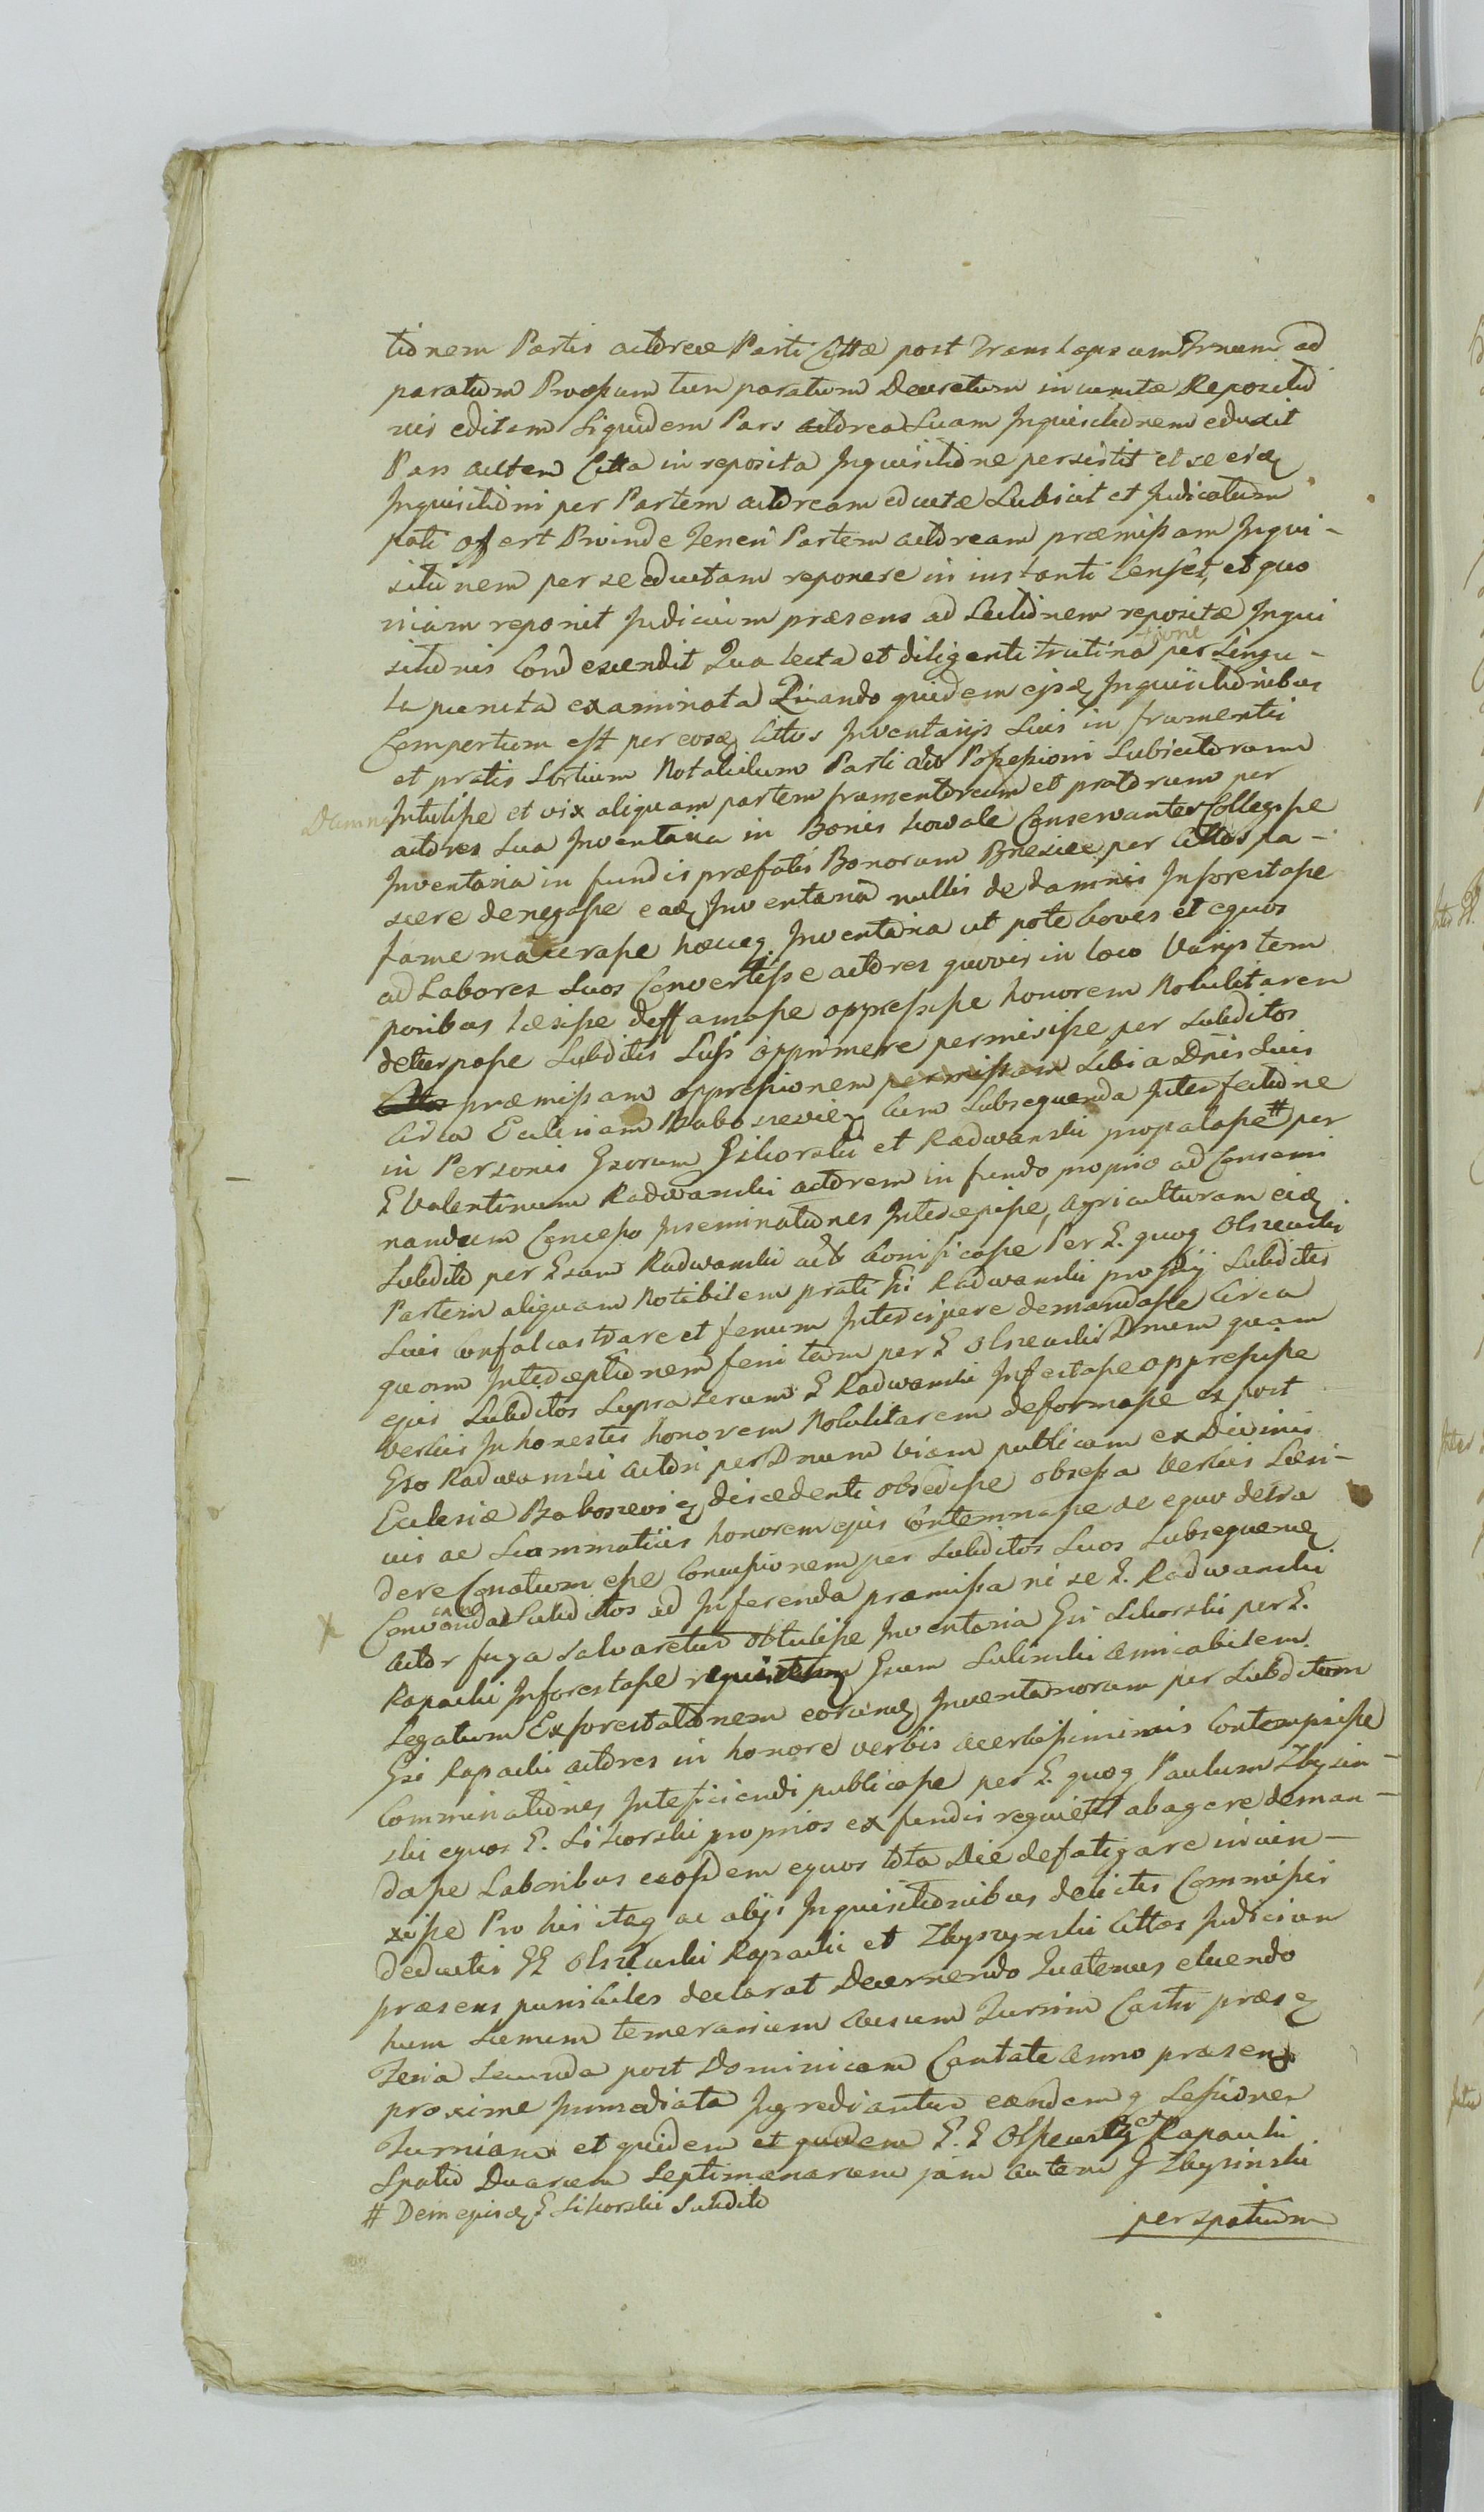 tionem Partis actoreæ Parti Cittæ post translapsum Trnum ad
paratum Procesum tum paratum Decretum in cunctæ Repositio
nis editam Siquidem Pars actorea Suam Inquisitionem eduxit
Pars autem Citta in reposita Inquisitione persistit et se eidę
Inquisitioni per Partem actoream eductæ Subicit et Judicatum
pati offert Proinde Teneri Partem actoream præmissam Inqui-
sitionem per se eductam reponere in instanti Censet, et quo
niam reponit Judicium præsens ad Lectionem repositæ Inqui
sitionis Condescendit Qua lecta et diligenti trutina per Singu-
la puncta examinata Quando quidem ejsdę Inquisitionibus
Compertum est per eosdę Cittos Inventarijs Suis in frumentis
et pratis Sortium Notabilum Parti act Possessioni Subiectorum
Damna Intulisse et vix aliquam partem frumentorum et pratorum per
actores Sua Inventaria in Bonis Kowale Conservantes Collegisse
Inventaria in fundis præfatis Bonorum Brzezie per Cittos pa-
scere denegasse eadę Inventaria nullis de damnis Inforestasse
fame macerasse hæcq Inventaria ut pote boves et equos
ad Labores Suos Convertisse actores quovis in loco Varijs tem
poribus læsisse deffamasse oppressisse honorem Nobilitarem
deturpasse Subditis Suis opprimere permisisse per Subditos
præmissam oppressionem permissam Sibi a Dnis Suis
Circa Eclesiam Baboszevieę Cum Subsequenda Interfectione
in Personis Gsorum Sikorski et Radwanski propalasse # per
G Valentinum Radwanski actorem in fundo proprio ad Consemi
nandum Concesso Inseminationes Intercepisse, agriculturam eidę
Subdito per Gsum Radwanski act bonificasse Per G. quoq Olszewski
Partem aliquam Notibilem prati Gsi Radwanski pro Subditis
Suis Confalcastrare et fenum Intercipere demandasse Circa
quam Interceptionem feni tam per G Olszewski Dnum quam
ejus Subditos Supra serum G Radwanski Infestasse oppressisse
Verbis Inhonestis honorem Nobilitarem deformasse ex post
Gso Radwanski actori per Dnum viam publicam ex Divinis
Eclesiæ Baboszevieę discedenti obsedisse obsessa Verbis Læsi-
vis ac Scammaticis honorem ejus Contemnasse de equo detra
dere Conatum esse Concussionem per Subditos Suos Subsequenę
Convocandas Subditos ad Inferenda præmissa ni se G. Radwanski
actor fuga salvaretur obtulisse Inventaria Gsi Sikorski per G.
Rapacki Inforestasse Gsum Sulinski amicabilem
Legatum Exforestationem eorundę Inventariorum per Subditum
Gsi Rapacki actores in honore verbis acerbissiminis Contempsisse
Comminationes Inteficiendi publicasse per G. quoq Paulum Zbyszin-
ski equos G. Sikorski proprios ex fundis requietis abagere deman-
dasse Laboribus eosdem equos tota Die defatigare invin-
xisse Pro his itaq ac alijs Inquisitionibus delictis Commissis
deductis GG Olszewski Rapacki et Zbyszynski Cittos Judicium
præsens punibiles declarat Decernendo Quatenus eluendo
hum Suemum temerarium ausum Turrim Castri præsę
Feria Secunda post Dominicam Cantate anno præsenę
proxime Immediata Ingrediantur eandemq Sessiones
Turriam et quidem et quidem G. G Olszewski et Rapacki
Spatio Duarum Septimanarum jam autem G Zbysinski
# Dein ejusdę G Sikorski Subdito
per spatium